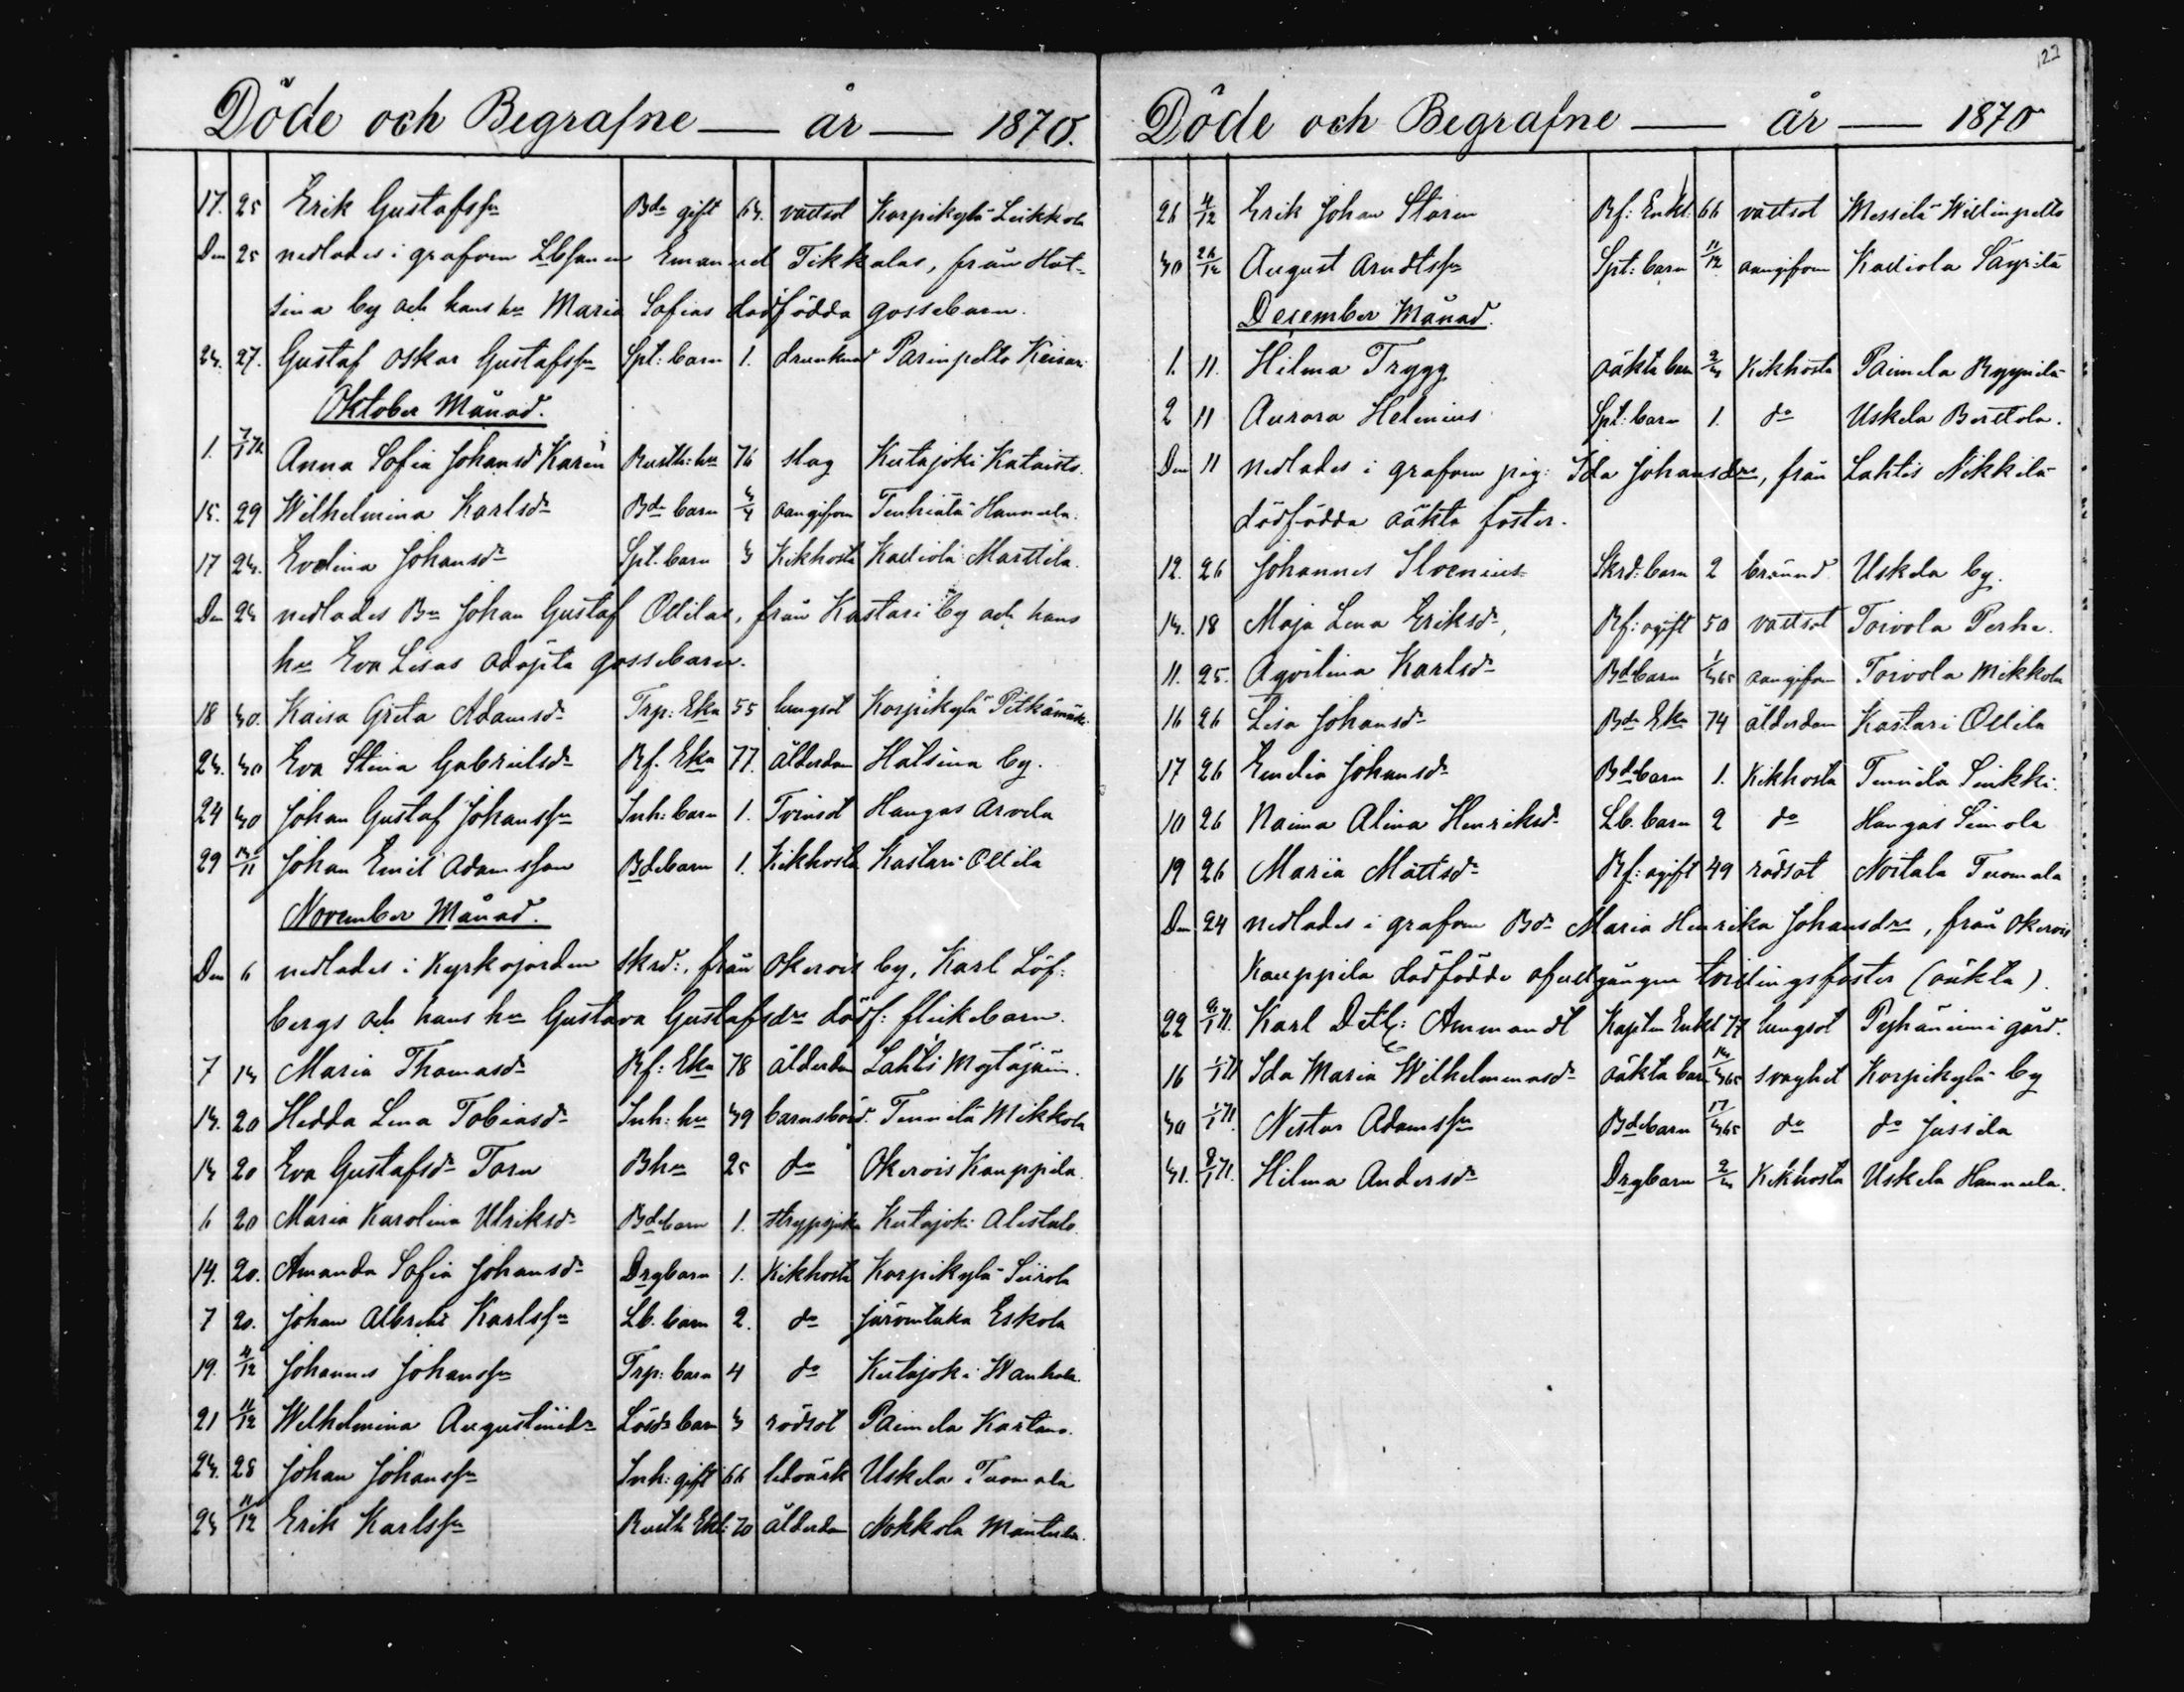 Döde och Begrafne — år — 1870.
17. 25 Erik Gustafssn Bde gift 63. vattsot Korpikylä Leikkola
Den 25 nedlades i grafven Lbsonen Emanuel Tikkalas, från Hat-
sina by och hans hu Maria Sofias dödfödda gossebarn.
23. 27. Gustaf Oskar Gustafssn Spt: barn 1. drunknad Parinpelto Keisari
Oktober Månad.
1. 7/1 71 Anna Sofia Johansd Karén Rusth: hu 76 slag Kutajoki Kataisto.
15. 29 Wilhelmina Karlsdr Bde barn 3/4 aangifven Tenhiälä Hannula.
17 23. Evelina Johansdr Spt. barn 3 Kikhosta Kaliola Marttila.
Den 23 nedlades Bn Johan Gustaf Ollilas, från Kastari by och hans
hu Eva Lisas odöpta gossebarn.
18 30. Kaisa Greta Adamsdr Trp: Eka 55 lungsot Korpikylä Pitkämäki
23. 30 Eva Stina Gabrielsdr Rf. Eka 77. ålderdom Hatsina by.
24 30 Johan Gustaf Johanssn Inh: barn 1. Tvinsot Hangas Arvela
29 13/11 Johan Emil Adamsson Bdebarn 1. Kikhosta Kastari Ollila
November Månad.
Den 6 nedlades i Kyrkojorden Skrd:, från Okerois by, Karl Löf-
bergs och hans hu Gustava Gustafsdrs dödf: flickebarn.
7 13 Maria Thomasdr Rf: Eka 78 ålderdom Lahtis
13. 20 Hedda Lena Tobiasdr Inh: hu 39 barnsbörd. Tennilä Mikkola
13 20 Eva Gustafsdr Torn Bhu 25 do Okerois Kauppila.
6 20 Maria Karolina Ulriksdr Bdebarn 1. strypsjuka Kutajoki Alestalo.
14. 20. Amanda Sofia Johansdr Drgbarn 1. Kikhosta Korpikylä Siirola
7 20. Johan Albrekt Karlssn Lb. barn 2. do Järventaka Eskola
19. 4/12 Johannes Johanssn Trp: barn 4 do Kutajoki Wanhala.
21 11/12 Wilhelmina Augustindr Lösdr barn 3 rödsot Paimela Kartano.
23. 28 Johan Johanssn Inh: gift 66 ledvärk Uskela Tuomala
23 11/12 Erik Karlssn Rusth Ekl: 70 ålderdom Nokkola Mäntula.
127
Döde och Begrafne — år — 1870
26 4/12 Erik Johan Storm Rf: Enkl: 66 vattsot Messilä Willinpelto
30 26/12 August Arndtssn Spt: barn 11/12 aangifven Kaliola Säyrilä
December Månad.
1. 11. Hilma Trygg oäkta barn 2/3 Kikhosta Paimela Ryynilä
2 11 Aurora Helenius Spt: barn 1. do Uskela Berttola.
Den 11 nedlades i grafven pig: Ida Johansdrs, från Lahtis Nikkilä
dödfödda oäkta foster.
12. 26 Johannes Ilvenius Skrd: barn 2 bränd Uskela by.
13. 18 Maja Lena Eriksdr, Rf: ogift 50 vattsot Toivola Perhe.
11. 25. Aqvilina Karlsdr Bdebarn 1/365 aangifven Toivola Mikkola
16 26 Lisa Johansdr Bde Eka 74 ålderdom Kastari Ollila
17 26 Emelia Johansdr Bdebarn 1. Kikhosta Tennilä Simkki.
10 26 Naima Alina Henriksdr Lb. barn 2 do Hangas Simola
19 26 Maria Mattsdr Rf: ogift 49 rödsot Noitala Tuomala
Den 24 nedlades i grafven Bdr Maria Henrika Johansdrs, från Okerois
Kauppila dödfödde ofullgångne tvillingsfoster (oäkta).
22 9/1 71. Karl Detl: Ammondt Kapten Enkl 77 lungsot Pyhäniemi gård.
16 1/1 71 Ida Maria Wilhelminasdr oäkta barn 13/365 svaghet Korpikylä by
30 1/1 71. Nestor Adamssn Bdebarn 17/365 do do Jussila
31. 8/1 71. Hilma Andersdr Drgbarn 2/3 Kikhosta Uskela Hannula.